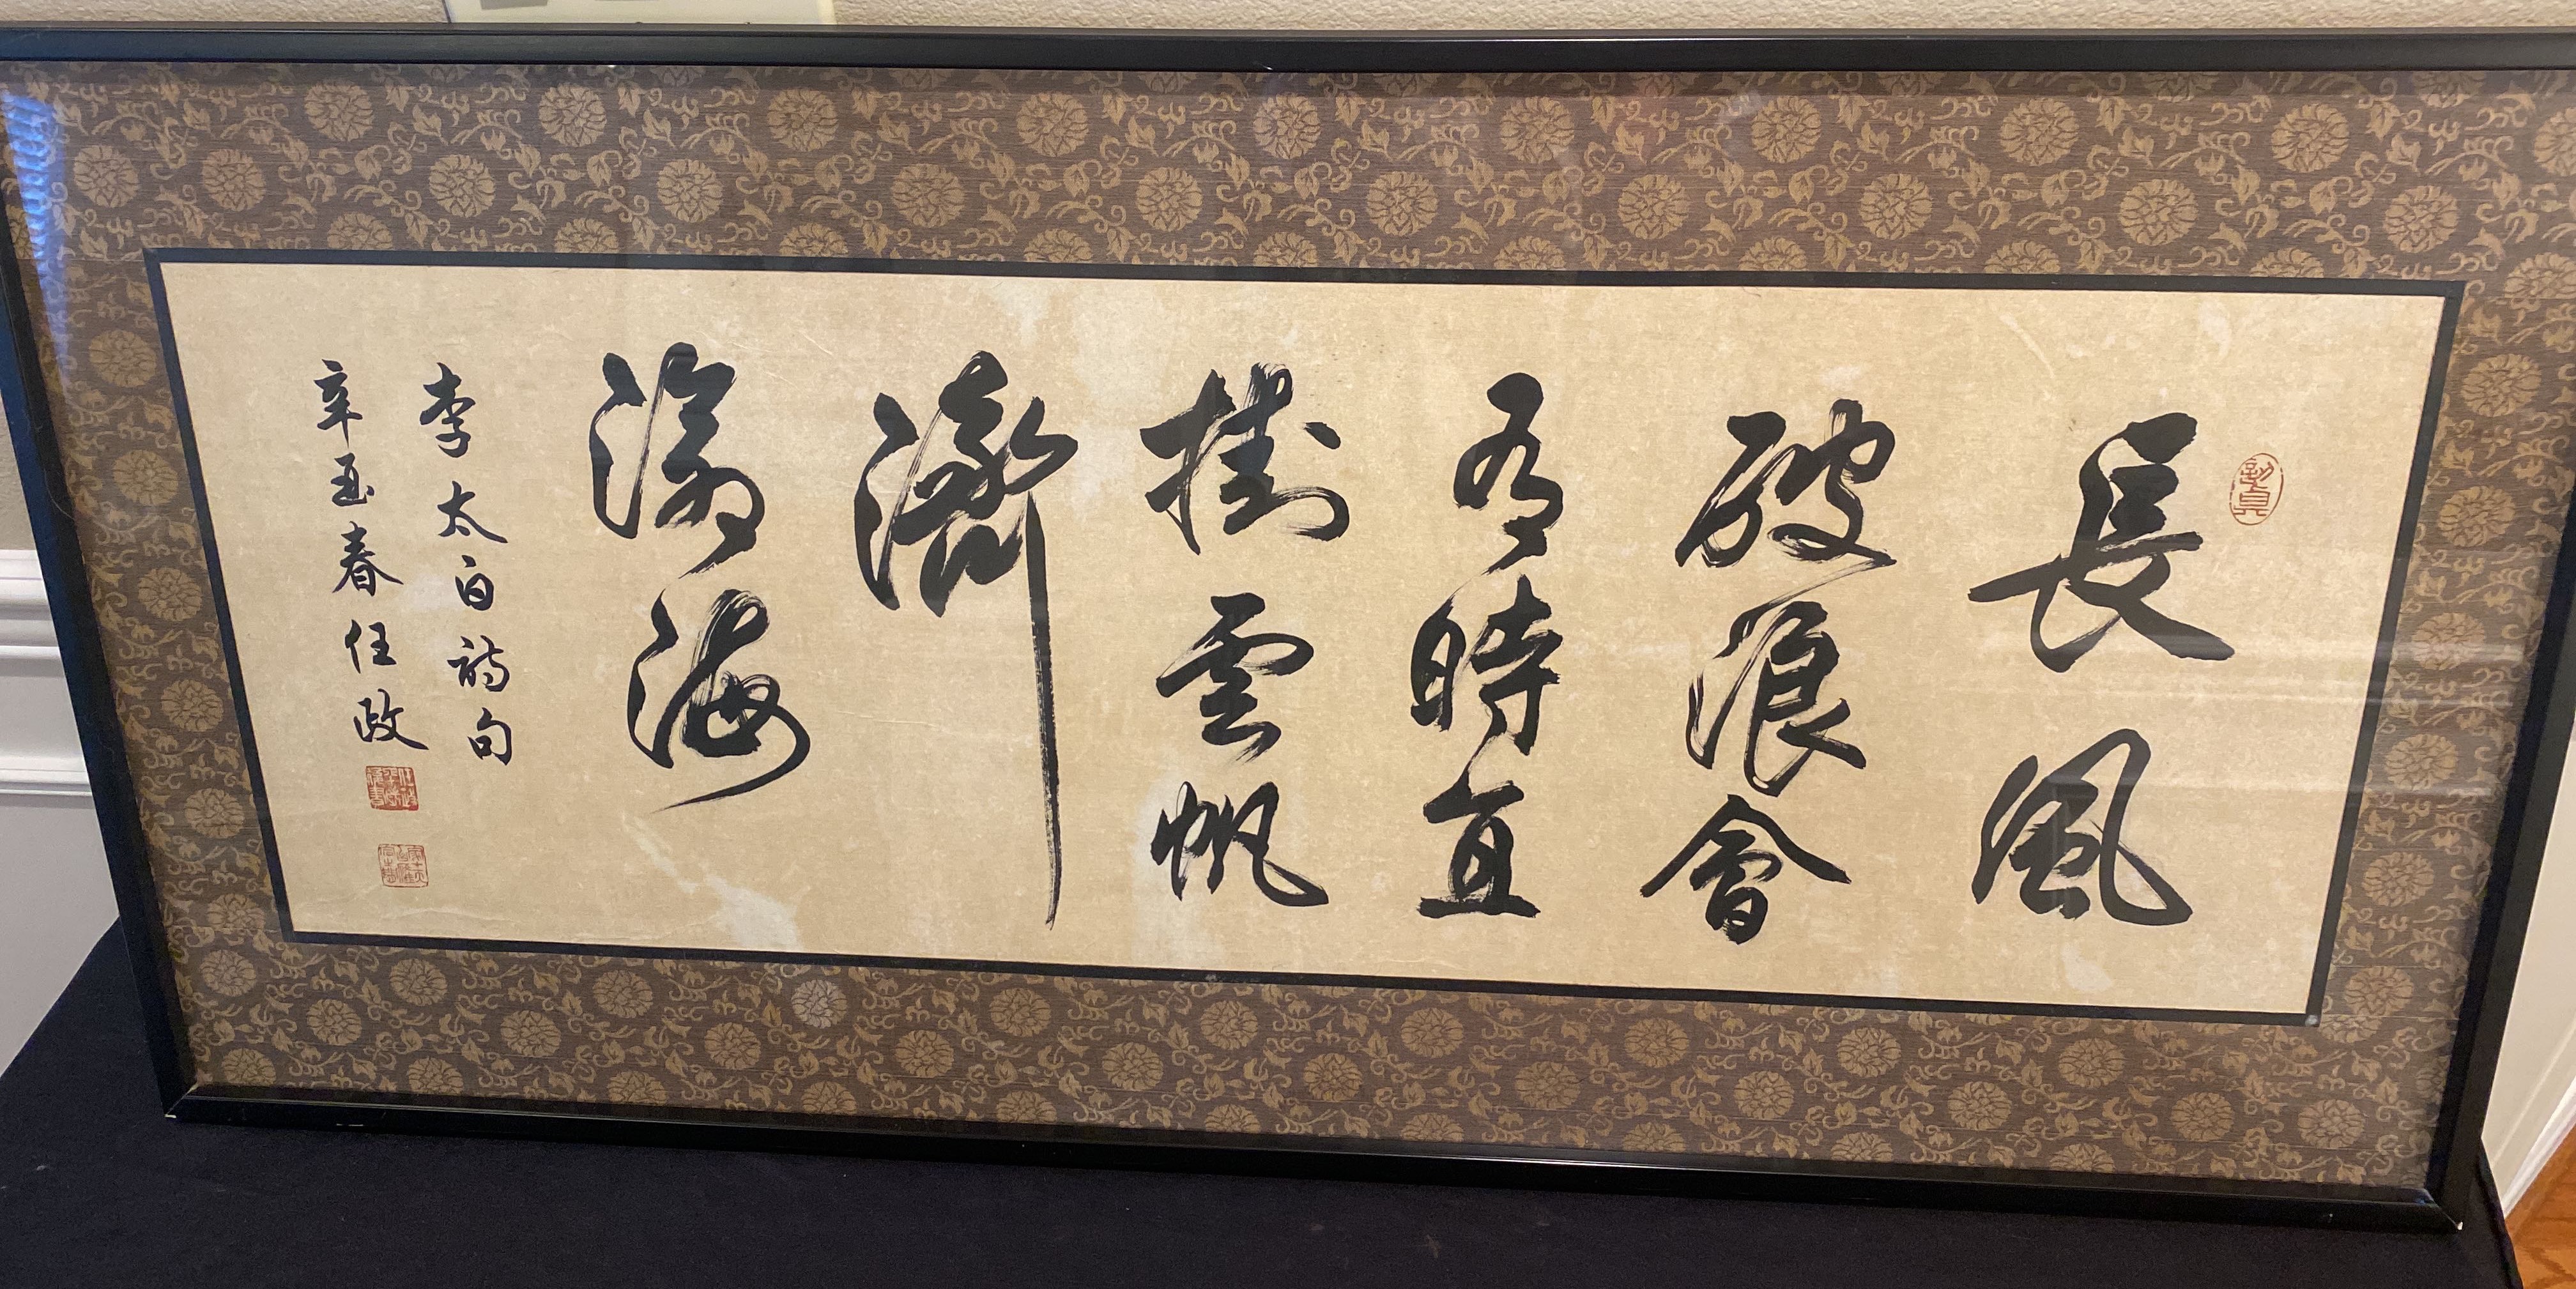 長風
破浪會
有時直
掛雲帆
濟
滄海
李太白詩句
辛酉春任政